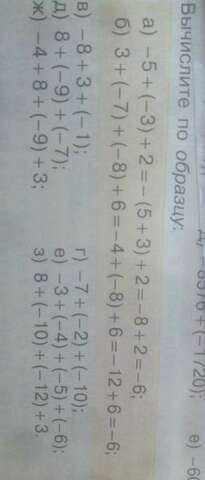 8376 + (−1720); е) −6
Вычислите по образцу:
а) −5 + (−3) + 2 = −(5 + 3) + 2 = −8 + 2 = −6;
б) 3 + (−7) + (−8) + 6 = −4 + (−8) + 6 = −12 + 6 = −6;
в) −8 + 3 + (−1); г) −7 + (−2) + (−10);
д) 8 + (−9) + (−7); е) −3 + (−4) + (−5) + (−6);
ж) −4 + 8 + (−9) + 3; з) 8 + (−10) + (−12) + 3.